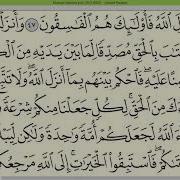 لَ ٱللَّهُ فَأُوْلَٰٓئِكَ هُمُ ٱلْفَٰسِقُونَ ٤٧ وَأَنزَلْ
تَٰبَ بِٱلْحَقِّ مُصَدِّقًا لِّمَا بَيْنَ يَدَيْهِ مِنَ
عَلَيْهِ فَٱحْكُم بَيْنَهُم بِمَآ أَنزَلَ ٱللَّهُ وَلَا تَتَّ
كَ مِنَ ٱلْحَقِّ لِكُلٍّ جَعَلْنَا مِنكُمْ شِرْعَةً وَ
ٱللَّهُ لَجَعَلَكُمْ أُمَّةً وَٰحِدَةً وَلَٰكِن لِّيَبْ
تَىٰكُمْ فَٱسْتَبِقُوا۟ ٱلْخَيْرَٰتِ إِلَى ٱللَّهِ مَرْجِعُكُ